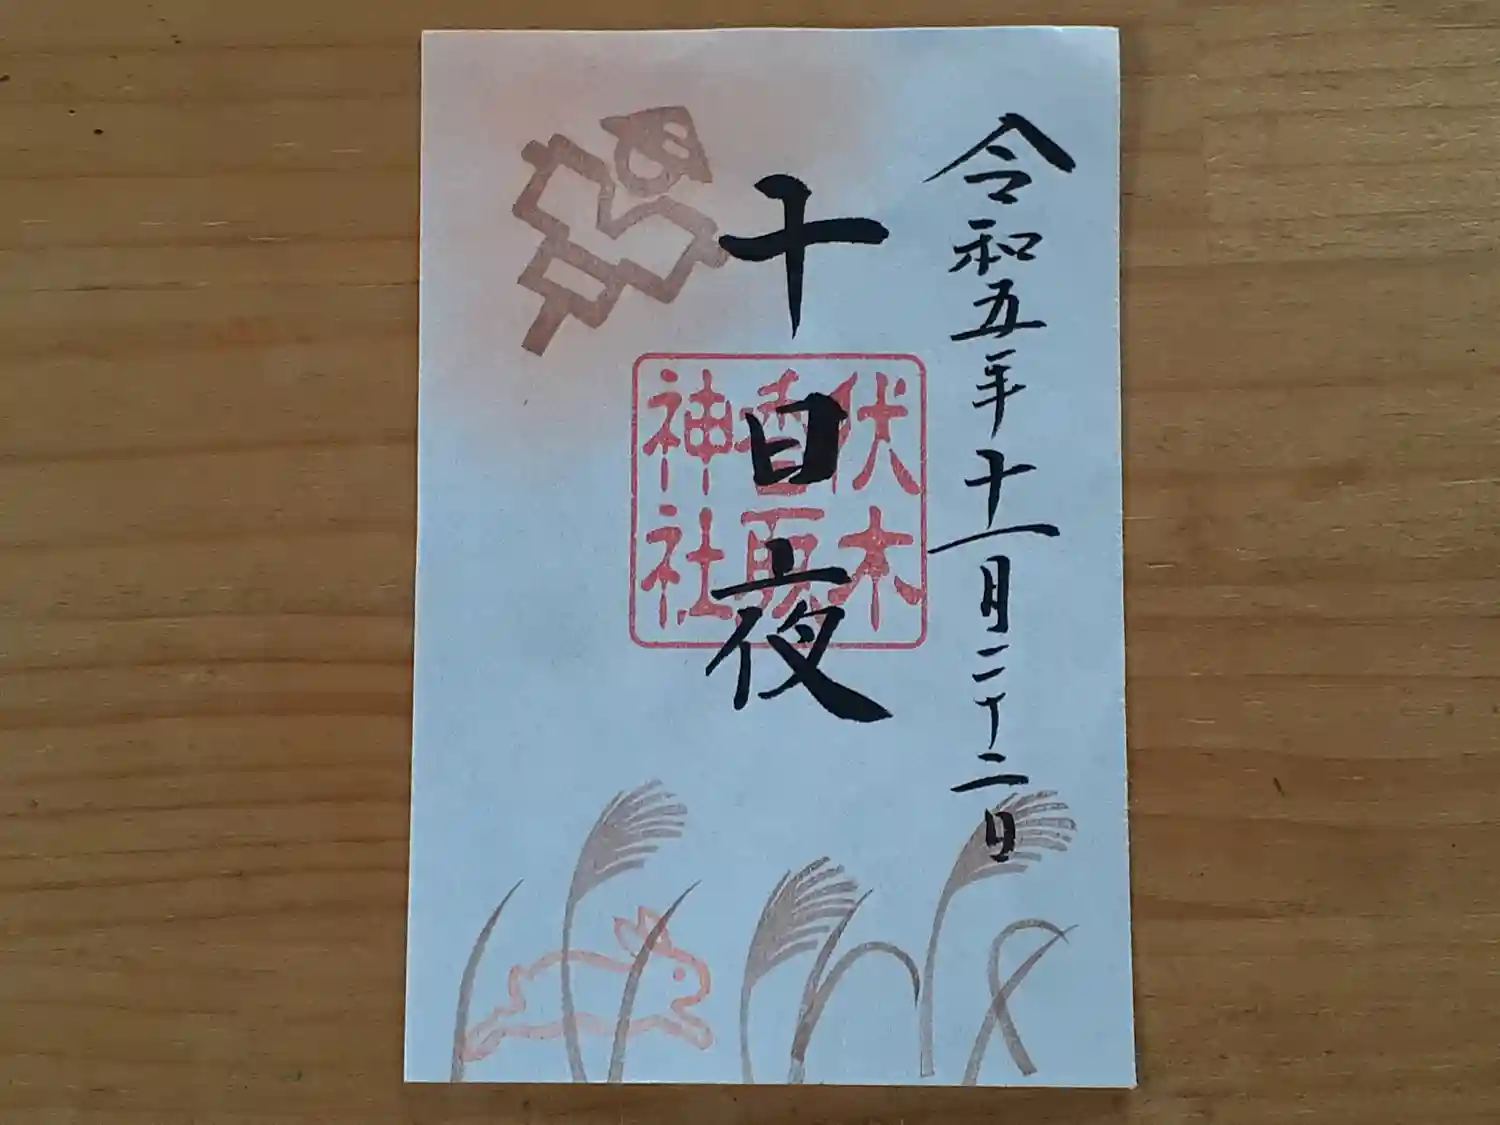 令和五年十一月二十二日
十日夜
伏木
香取
神社